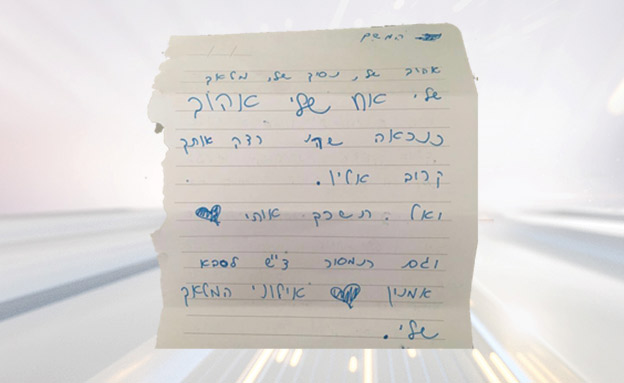 המשך
אהוב שלי, נסיך שלי, מלאך
שלי אח שלי אהוב
כנראה רצה אותך
קרוב אליו.
ואל תשכח אותי
וגם תמסור ד"ש לסבא
אמנון אילוני המלאך
שלי.